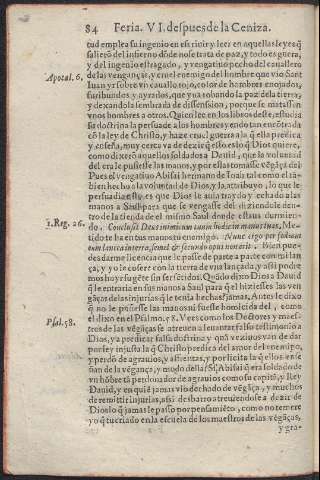 84 Feria. VI. despues de la Ceniza.
tud emplea su ingenio en escriuir y leer en aquellas leyes q̃
salierō del infierno dōde no se trata de paz, y todo es guerra,
y del ingenio estragado, y vengatiuo pecho del cauallero
de las venganças, y cruel enemigo del hombre que vio Sant
Apocal. 6.
Iuan yr sobre vn cauallo rojo, color de hombres enojados,
furibundos, y ayrados, que yua robando la paz de la tierra,
y dexando sembrada de dissension, porque se matassen
vnos hombres a otros. Quien lee en los libros de este, estudia
su doctrina la persuade a los hombres y
cō la ley de Christo, y haze guerra a la q̃ el la predica
y enseña, muy cerca va de dezir q̃ esto es lo q̃ Dios quiere,
como dixerō aquellos soldados a Dauid, que la voluntad
del era le pusiesse las manos, y por ella tomasse
Pues el vengatiuo Abisai hermano de Ioab tal como el tā-
bien hecho a la voluntad de Dios, y la atribuyo, lo que le
persuadia esto es que Dios le auia traydo y echado a las
manos a Saul para que le vengasse del durmiendo den-
tro de la tienda de el mismo Saul donde estaua durmien-
1. Reg. 26.
do. Conclusit Deus inimicum tuum hodie in manus tuas, Me-
tido te ha en tus manos tu enemigo. Nunc ergo perfodiam
eum lancea in terra, semel & secundo opus non erit. Bien pue-
des darme licencia que le passe de parte a parte con mi lan
ça, y yo le cosere con la tierra de vna lançada, y assi podre
mos huyr sugetos sin ser sentidos. Quādo dixo Dios a Dauid
q̃ le entraria en sus manos a Saul para q̃ el hiziesse las ven
gāças de las injurias q̃ le tenia hechas? jamas. Antes le dixo
q̃ no le pusiesse las manos ni fuesse homicida del, como
Psal. 58.
el dixo en el Psalmo. 58. Veys como los Doctores y maes-
tros de las vēgāças se atreuen a leuantar falso testimonio a
Dios, ya predicar falsa doctrina y quā vezinos van de dar
por ley injusta la q̃ Christo predica del amor del enemigo,
y perdō de agrauios, y assientan, y por licita la q̃ ellos ense
ñan de la vēgāça, y modo della? Si, Abisai q̃ era soldado de
vn hōbre tā perdonador de agrauios como su capitā, y Rey
Dauid, y en quiē jamas vio dechado de vēgāça, y muchos
de remitir injurias, assi desbarro atreuiendose a dezir de
Dios lo q̃ jamas le passo por pensamiēto, como no temere
yo q̃ tu criado en la escuela de los maestros de las vēgāças,
y gra-